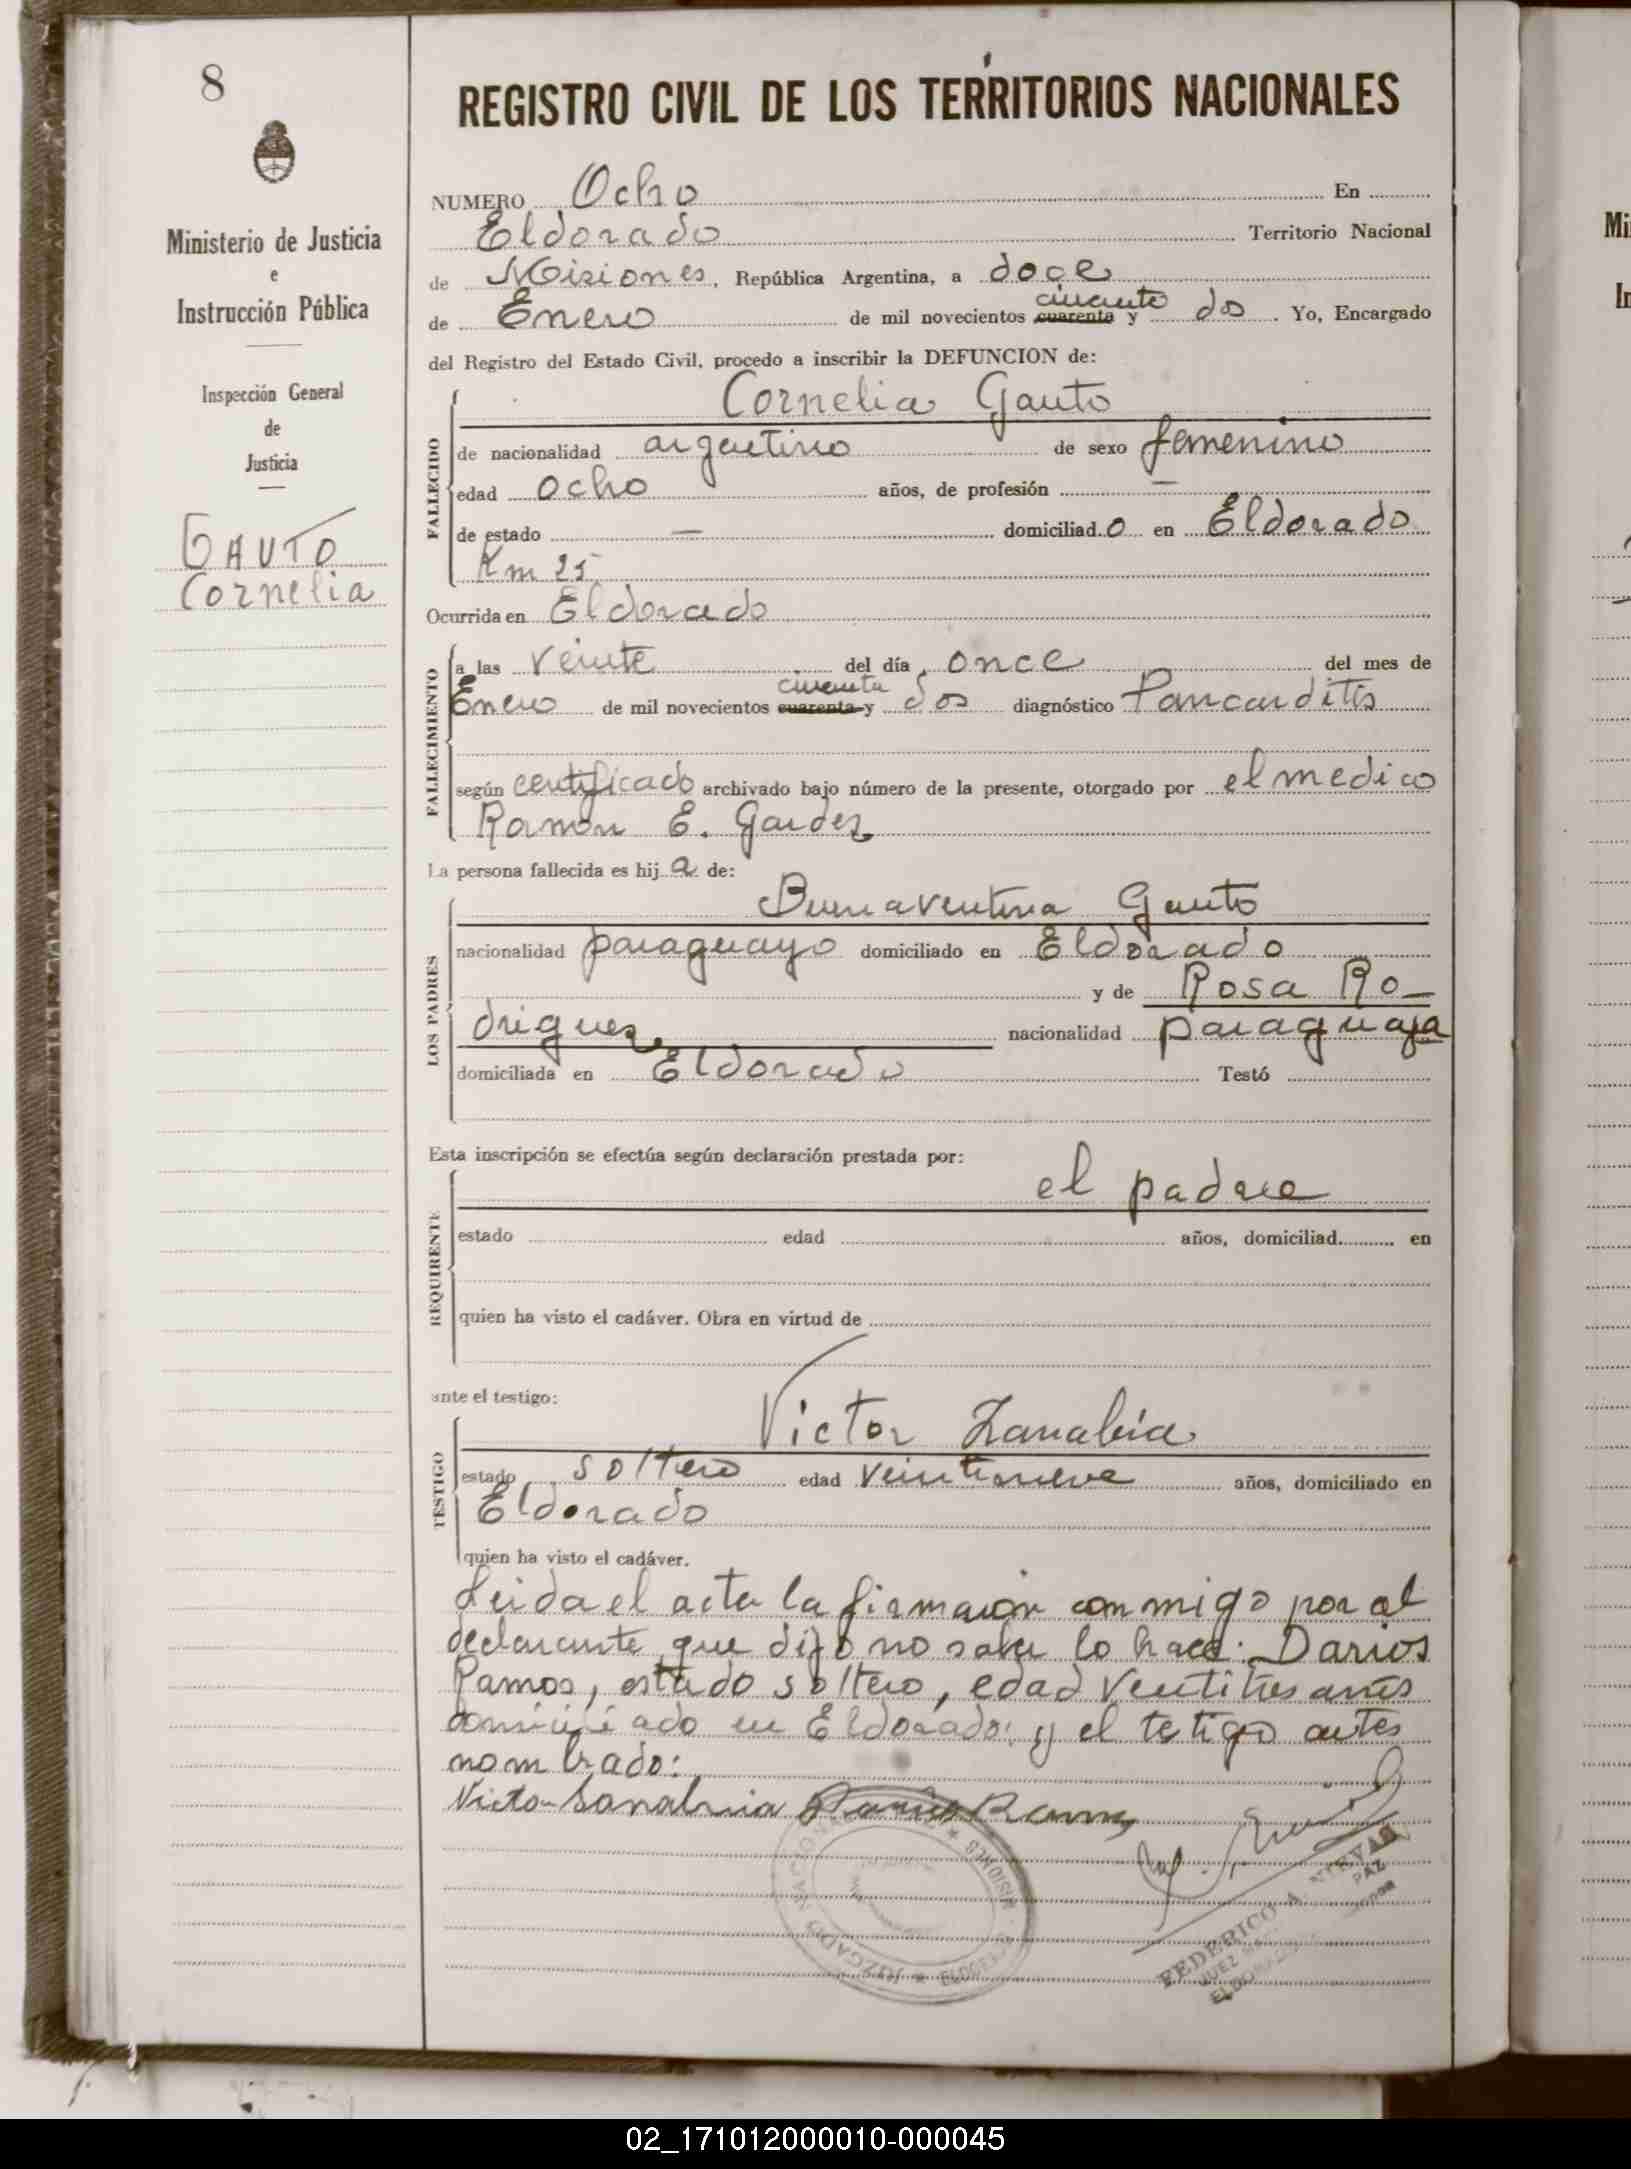 8
REGISTRO CIVIL DE LOS TERRITORIOS NACIONALES
Ministerio de Justicia
e
Instrucción Pública
Inspección General
de
Justicia
GAUTO
Cornelia
NUMERO Ocho En
Eldorado Territorio Nacional
de Misiones, República Argentina, a doce
cincuenta
de Enero de mil novecientos cuarenta y dos. Yo, Encargado
del Registro del Estado Civil, procedo a inscribir la DEFUNCION de:
FALLECIDO
Cornelia Gauto
de nacionalidad argentino de sexo femenino
edad ocho años, de profesión —
de estado — domiciliad.o en Eldorado
Km 25
Ocurrida en Eldorado
FALLECIMIENTO
a las veinte del día once del mes de
cincuenta
Enero de mil novecientos cuarenta y dos diagnóstico Pancarditis
según certificado archivado bajo número de la presente, otorgado por el medico
Ramon E. Gardez
La persona fallecida es hij a de:
LOS PADRES
Buenaventura Gauto
nacionalidad paraguayo domiciliado en Eldorado
y de Rosa Ro-
driguez nacionalidad paraguaja
domiciliada en Eldorado Testó
Esta inscripción se efectúa según declaración prestada por:
REQUIRENTE
el padre
estado edad años, domiciliad en
quien ha visto el cadáver. Obra en virtud de
ante el testigo:
TESTIGO
Victor Zanabria
estado soltero edad veintinueve años, domiciliado en
Eldorado
quien ha visto el cadáver.
Leida el acta la firmaron conmigo por el
declarante que dijo no saber lo hace: Darios
Ramos, estado soltero, edad ventitres años
domiciliado en Eldorado: y el tetigo antes
nombrado:
Victo Sanabria Dario Ramos
JUZGADO ★ MISIONES ★ ELDORADO
FEDERICO A. NIEVAS
JUEZ DE PAZ
ELDORADO
02_171012000010-000045